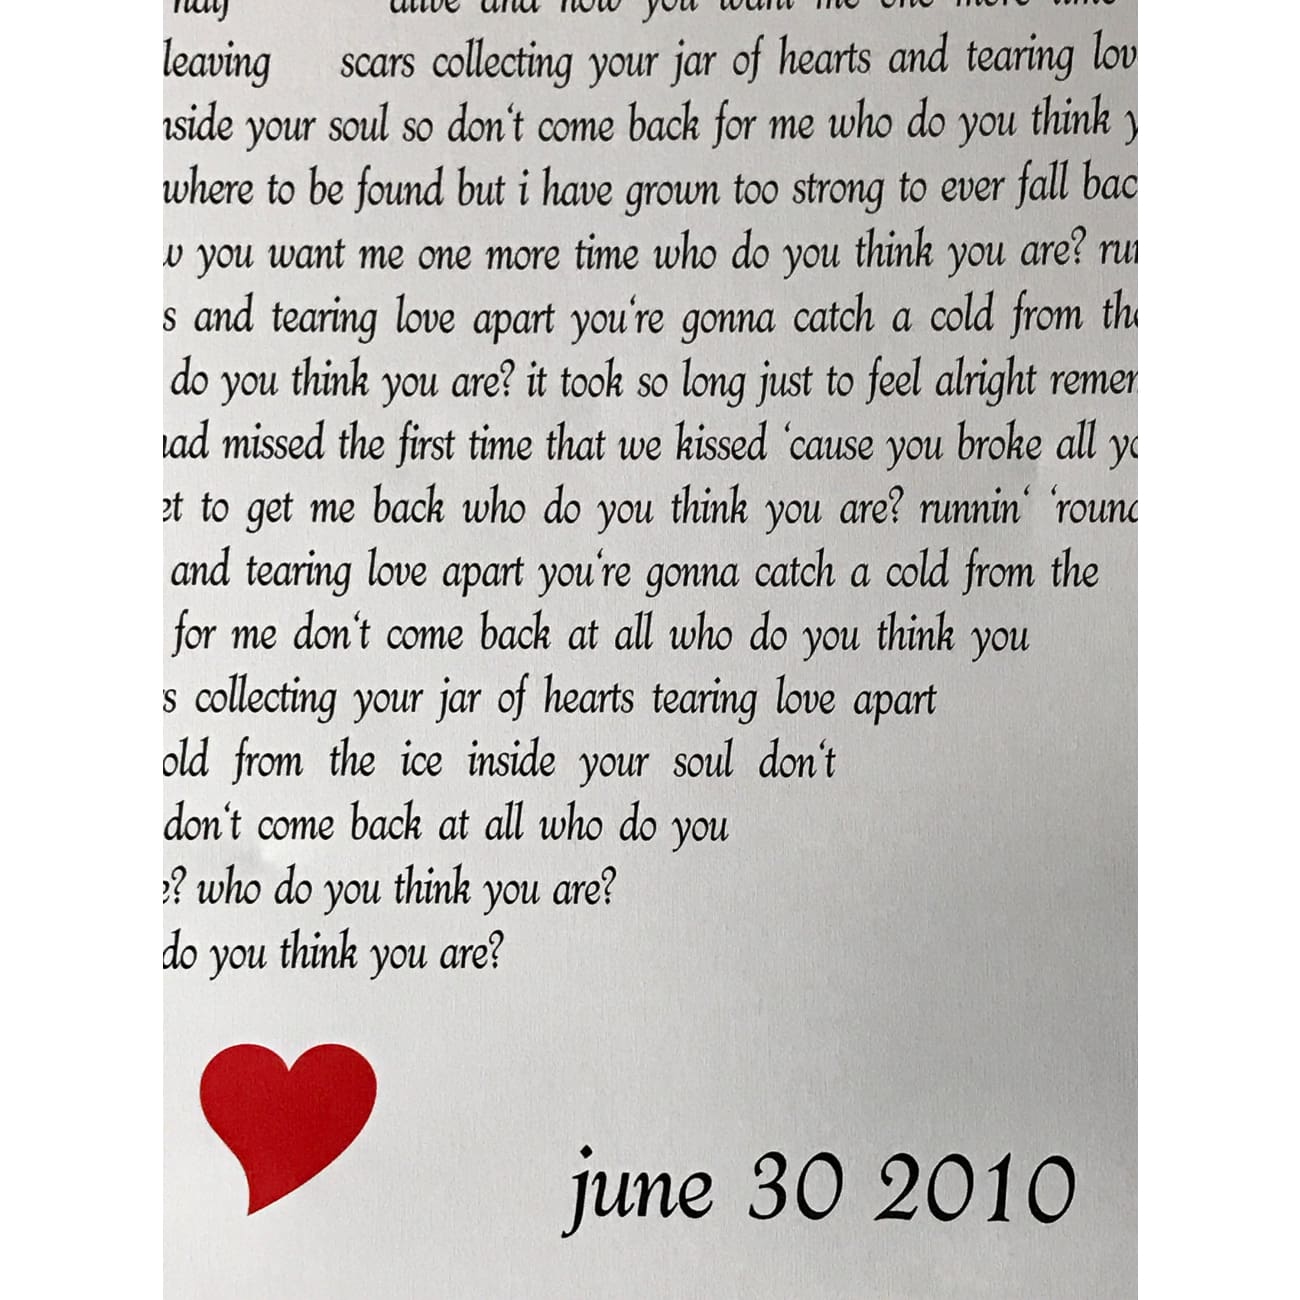 half alive and now you want me one more time
leaving scars collecting your jar of hearts and tearing lov
side your soul so don't come back for me who do you think y
where to be found but i have grown too strong to ever fall bac
you want me one more time who do you think you are? ru
s and tearing love apart you're gonna catch a cold from the
do you think you are? it took so long just to feel alright remem
ad missed the first time that we kissed 'cause you broke all yo
et to get me back who do you think you are? runnin' 'round
and tearing love apart you're gonna catch a cold from the
for me don't come back at all who do you think you
s collecting your jar of hearts tearing love apart
old from the ice inside your soul don't
don't come back at all who do you
e? who do you think you are?
do you think you are?
june 30 2010